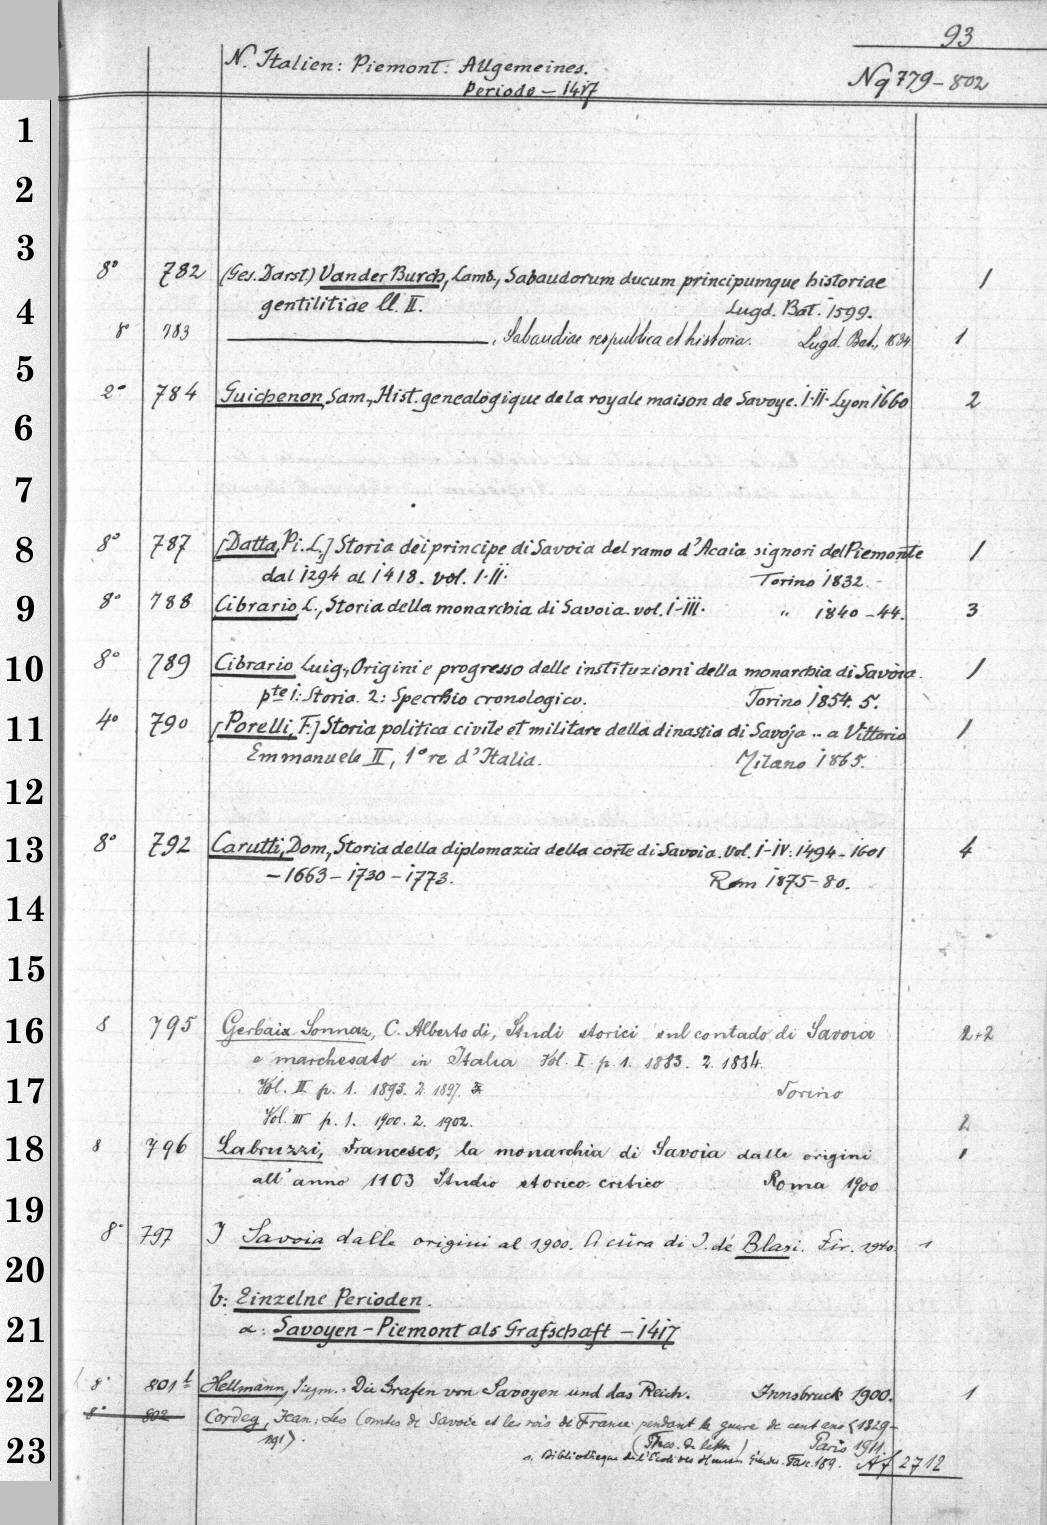 93
N. Italien: Piemont: Allgemeines.
Periode – 1417
Nq 779–802
1
2
3
8° 782 (Ges. Darst) Vander Burch, Lamb., Sabaudorum ducum principumque historiae 1
4
gentilitiae ll. II. Lugd. Bat. 1599.
8 783 , Sabaudiae respublica et historia. Lugd. Bat., 1634 1
5
2° 784 Guichenon, Sam., Hist. genealogique de la royale maison de Savoye. I·II· Lyon 1660 2
6
7
8
8° 787 [Datta, Pi. L.,] Storia dei principe di Savoia del ramo d'Acaia signori del Piemonte 1
dal 1294 al 1418. vol. I·II· Torino 1832.
9
8° 788 Cibrario, L., Storia della monarchia di Savoia. vol. I–III. „ 1840–44. 3
10
8° 789 Cibrario Luig., Origini e progresso delle instituzioni della monarchia di Savoia. 1
pte 1: Storia. 2: Specchio cronologico. Torino 1854. 5.
11
4° 790 [Porelli, F.] Storia politica civile et militare della dinastia di Savoja .. a Vittorio 1
Emmanuele II, 1° re d'Italia. Milano 1865.
12
13
8° 792 Carutti, Dom., Storia della diplomazia della corte di Savoia. Vol. I–IV. 1494–1601 4
–1663–1730–1773. Rom 1875–80.
14
15
16
8 795 Gerbaix Sonnaz, C. Alberto di, Studi storici sul contado di Savoia 2+2
e marchesato in Italia Vol. I p. 1. 1883. 2. 1884.
17
Vol. II p. 1. 1893. 2. 1897. Torino
Vol. III p. 1. 1900. 2. 1902. 2
18
8 796 Labruzzi, Francesco, la monarchia di Savoia dalle origini 1
all' anno 1103 Studio storico critico Roma 1900
19
8° 797 I Savoia dalle origini al 1900. A cura di J. de Blasi. Fir. 1940. 1
20
b: Einzelne Perioden.
21
α: Savoyen–Piemont als Grafschaft – 1417
22
8° 801 Hellmann, Siegm.: Die Grafen von Savoyen und das Reich. Innsbruck 1900. 1
8° 802 Cordey, Jean: Les Comtes de Savoie et les rois de France pendant la guerre de cent ans <1329–
1391>. Paris 1911.
23
s. Bibliothèque de l'École des Hautes Études. Fasc. 189. Af 2712